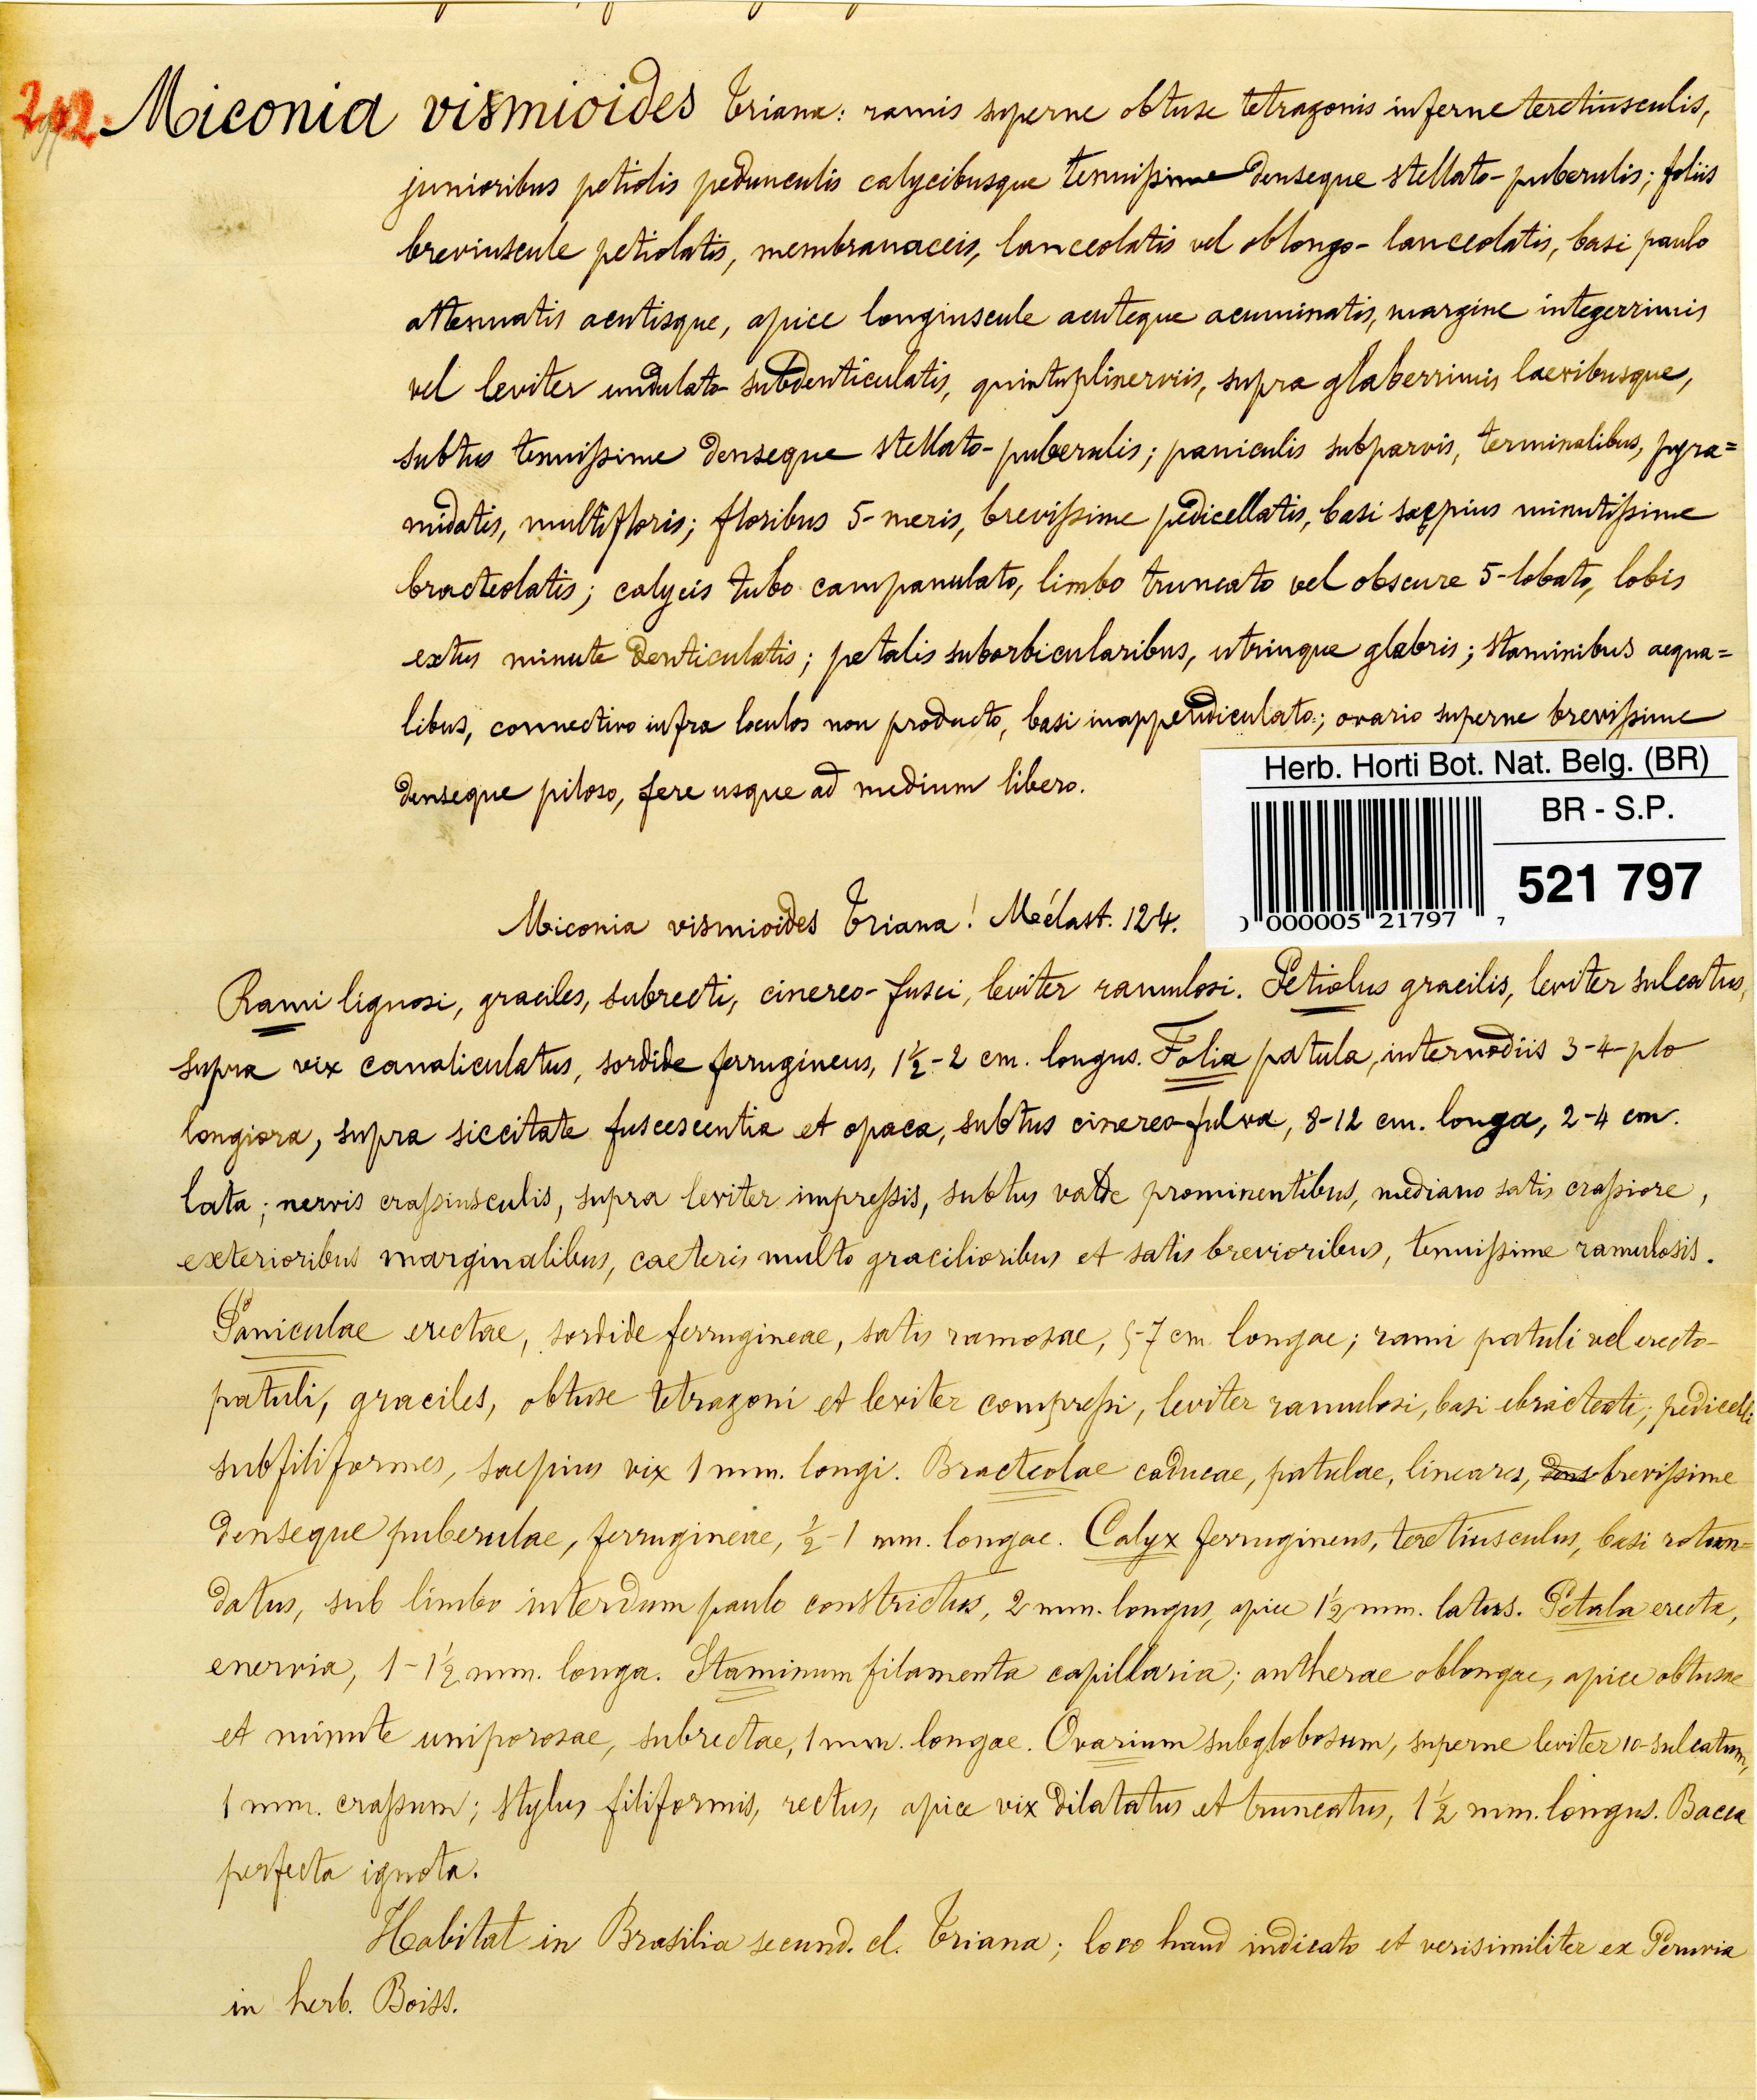 212. Miconia vismioides Triana: ramis superne obtuse tetragonis inferne teretiusculis,
junioribus petiolis pedunculis calycibusque tenuissime denseque stellato-puberulis; foliis
breviuscule petiolatis, membranaceis, lanceolatis vel oblongo-lanceolatis, basi paulo
attenuatis acutisque, apice longiuscule acuteque acuminatis, margine integerrimis
vel leviter undulato-subdenticulatis, quintuplinerviis, supra glaberrimis laevibusque,
subtus tenuissime denseque stellato-puberulis; paniculis subparvis, terminalibus, pyra=
midatis, multifloris; floribus 5-meris, brevissime pedicellatis, basi saepius minutissime
bracteolatis; calycis tubo campanulato, limbo truncato vel obscure 5-lobato, lobis
extus minute denticulatis; petalis suborbicularibus, utrinque glabris; staminibus aequa=
libus, connectivo infra loculos non producto, basi inappendiculato; ovario superne brevissime
denseque piloso, fere usque ad medium libero.
Herb. Horti Bot. Nat. Belg. (BR)
BR - S.P.
521 797
000000521797 7
Miconia vismioides Triana! Mélast. 124.
Rami lignosi, graciles, subrecti, cinereo-fusci, leviter ramulosi. Petiolus gracilis, leviter sulcatus,
supra vix canaliculatus, sordide ferrugineus, 1½-2 cm. longus. Folia patula, internodiis 3-4-plo
longiora, supra siccitate fuscescentia et opaca, subtus cinereo-fulva, 8-12 cm. longa, 2-4 cm.
lata; nervis crassiusculis, supra leviter impressis, subtus valde prominentibus, mediano satis crassiore,
exterioribus marginalibus, caeteris multo gracilioribus et satis brevioribus, tenuissime ramulosis.
Paniculae erectae, sordide ferrugineae, satis ramosae, 5-7 cm longae; rami patuli vel erecto-
patuli, graciles, obtuse tetragoni et leviter compressi, leviter ramulosi, basi ebracteati; pedicelli
subfiliformes, saepius vix 1 mm. longi. Bracteolae caducae, patulae, lineares, dens brevissime
denseque puberulae, ferrugineae, ½-1 mm. longae. Calyx ferrugineus, teretiusculus, basi rotun=
datus, sub limbo interdum paulo constrictus, 2 mm. longus, apice 1½ mm. latus. Petala erecta,
enervia, 1-1½ mm. longa. Staminum filamenta capillaria; antherae oblongae, apice obtusae
et minute uniporosae, subrectae, 1 mm. longae. Ovarium subglobosum, superne leviter 10-sulcatum,
1 mm. crassum; stylus filiformis, rectus, apice vix dilatatus et truncatus, 1½ mm. longus. Bacca
perfecta ignota.
Habitat in Brasilia secund. cl. Triana; loco haud indicato et verisimiliter ex Peruvia
in herb. Boiss.